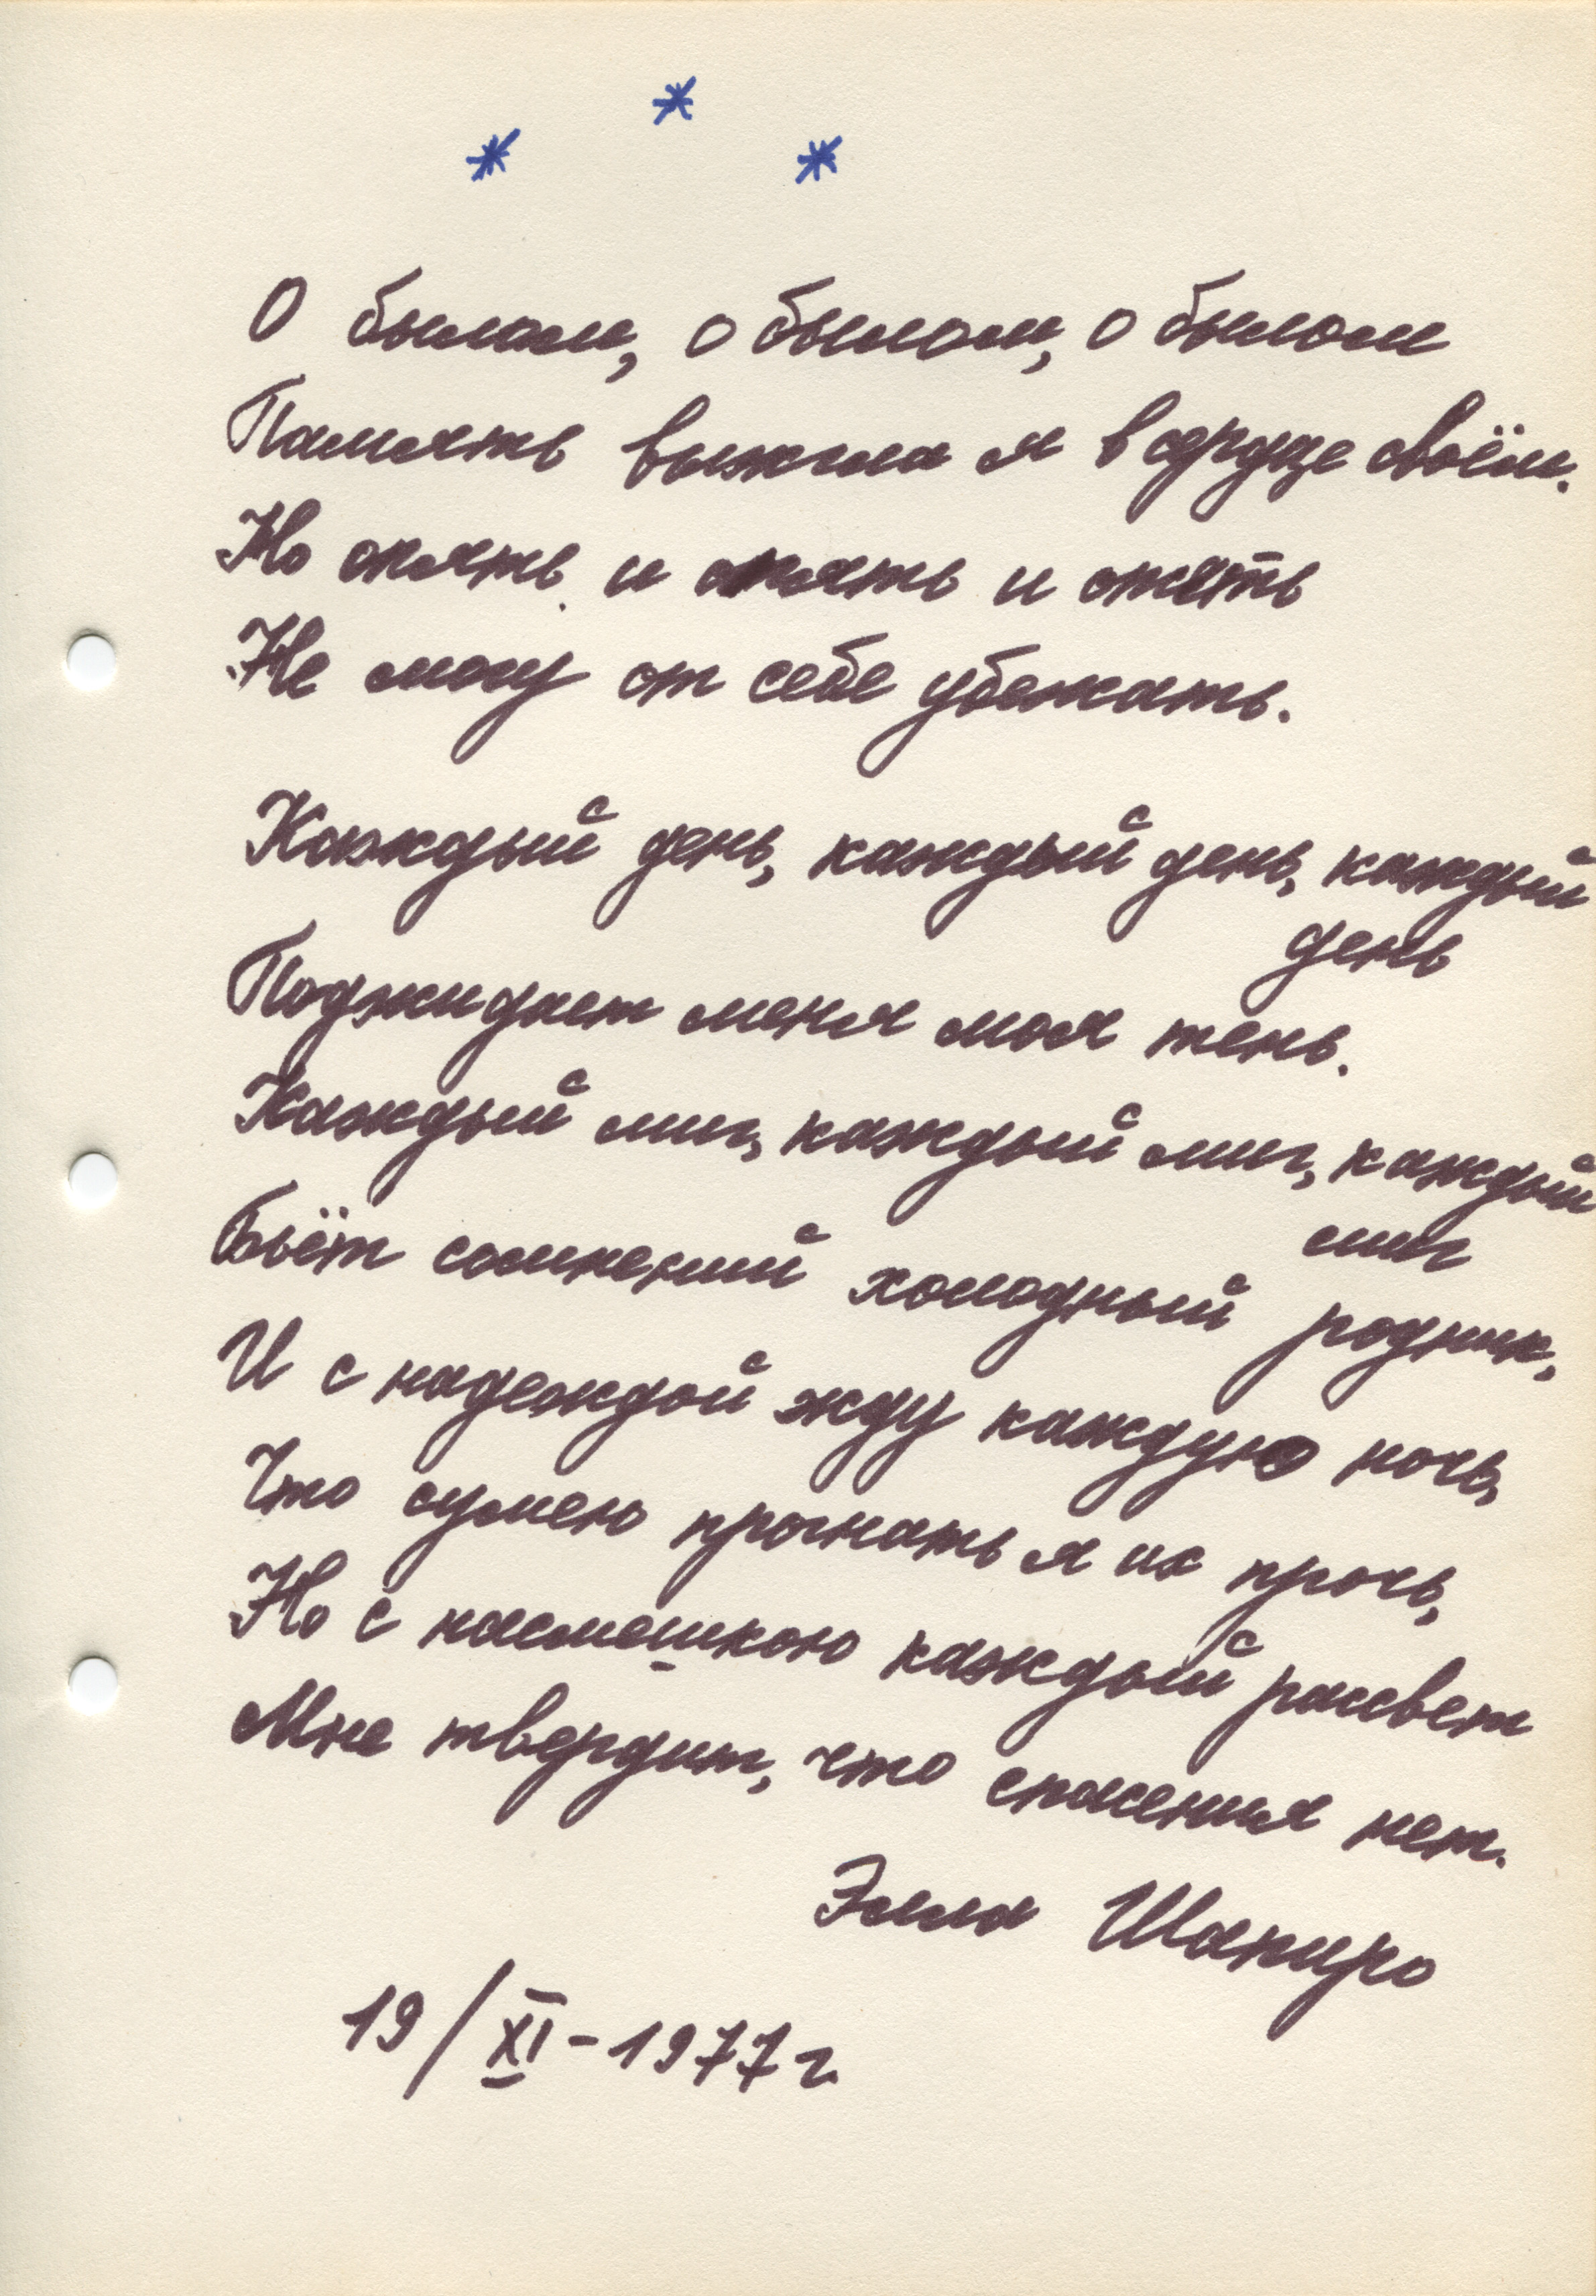 * * *
О былом, о былом, о былом
Память выжгла я в сердце своём.
Но опять и опять и опять
Не могу от себе убежать.
Каждый день, каждый день, каждый
день
Поджидает меня моя тень.
Каждый миг, каждый миг, каждый
миг
Бьёт сомнений холодный родник,
И с надеждой жду каждую ночь,
Что сумею прогнать я их прочь,
Но с насмешкою каждый рассвет
Мне твердит, что спасения нет.
Элла Шапиро
19/XI-1977 г.